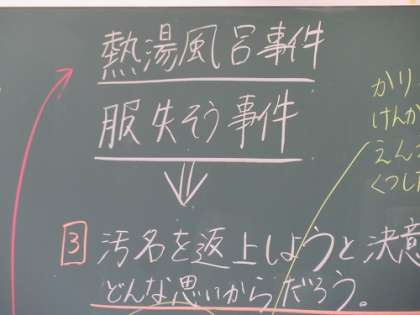 熱湯風呂事件
服失そう事件
3 汚名を返上しようと決意
どんな思いからだろう。
かり
けんか
えんこ
くつした